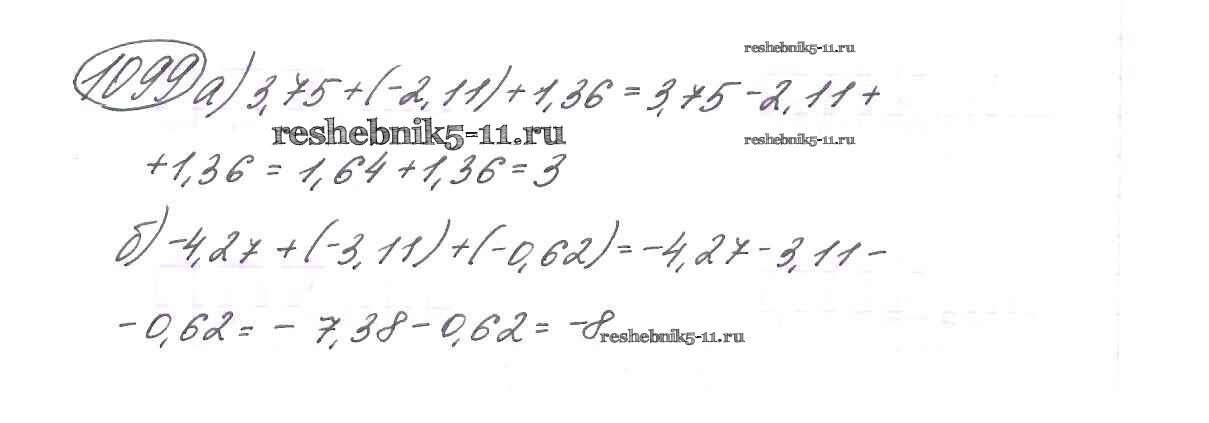 reshebnik5-11.ru
1099 а) 3,75 + (-2,11) + 1,36 = 3,75 - 2,11 +
reshebnik5-11.ru
reshebnik5-11.ru
+ 1,36 = 1,64 + 1,36 = 3
б) -4,27 + (-3,11) + (-0,62) = -4,27 - 3,11 -
- 0,62 = - 7,38 - 0,62 = -8
reshebnik5-11.ru